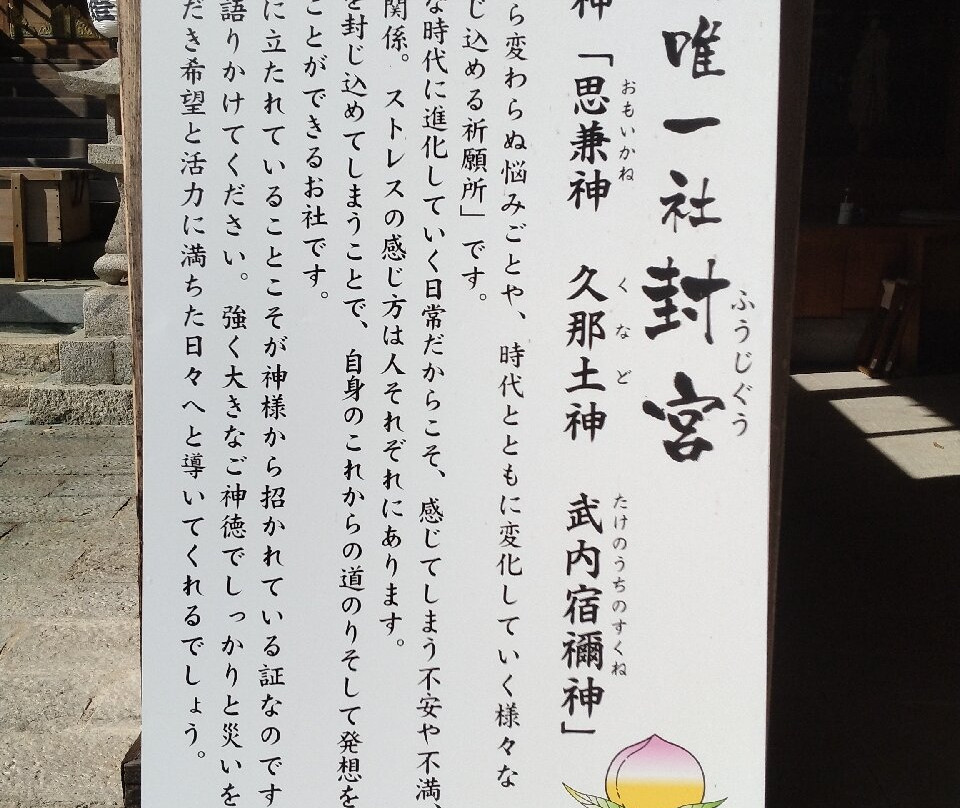 唯一社封宮
ふうじぐう
神「思兼神 久那土神 武内宿禰神」
おもいかね くなど たけのうちのすくね
ら変わらぬ悩みごとや、時代とともに変化していく様々な
じ込める祈願所」です。
な時代に進化していく日常だからこそ、感じてしまう不安や不満、
関係。ストレスの感じ方は人それぞれにあります。
を封じ込めてしまうことで、自身のこれからの道のりそして発想を
ことができるお社です。
に立たれていることこそが神様から招かれている証なのです
語りかけてください。強く大きなご神徳でしっかりと災いを
だき希望と活力に満ちた日々へと導いてくれるでしょう。